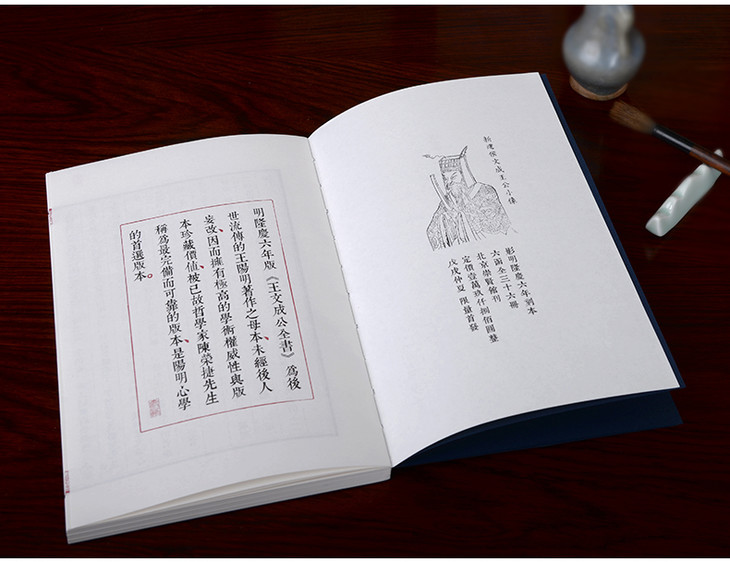 新建侯文成王公小像
影明隆慶六年刻本
六函全三十六冊
北京崇賢館刊
定價壹萬玖仟捌佰圓整
戊戌仲夏 限量首發
明隆慶六年版《王文成公全書》爲後
世流傳的王陽明著作之母本、未經後人
妄改、因而擁有極高的學術權威性與版
本珍藏價值、被已故哲學家陳榮捷先生
稱爲最完備而可靠的版本、是陽明心學
的首選版本。